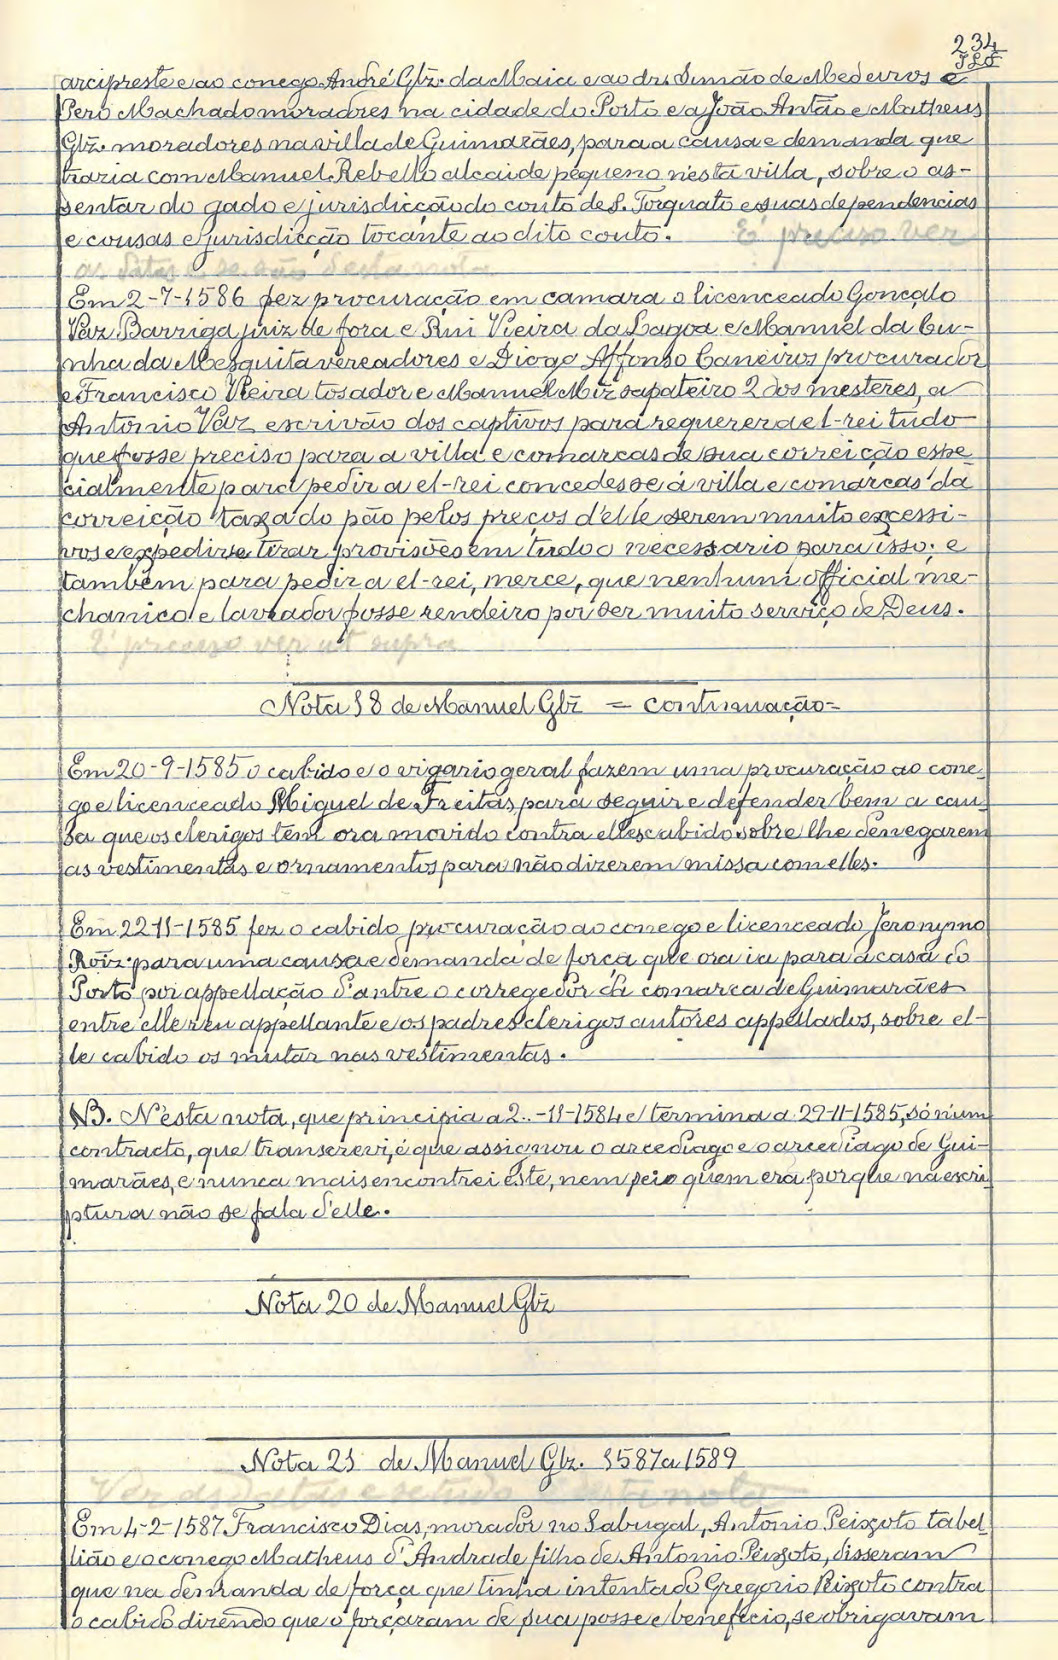 234
arcipreste e ao conego André Glz. da Maia e ao dr. Simão de Medeiros e
Pero Machado moradores na cidade do Porto e a João Antão e Matheus
Glz. moradores na villa de Guimarães, para a causa e demanda que
trazia com Manuel Rebello alcaide pequeno nésta villa, sobre o as-
sentar do gado e jurisdicção do couto de S. Torquato e suas dependencias
e cousas e jurisdicção tocante ao dito couto. É preciso ver
as datas e se são desta nota
Em 2-7-1586 fez procuração em camara o licenceado Gonçalo
Vaz Barriga juiz de fora e Rui Vieira da Lagoa e Manuel da Cu-
nha da Mesquita vereadores e Diogo Affonso Caneiros procurador
e Francisco Vieira tosador e Manuel Miz sapateiro 2 dos mesteres, a
Antonio Vaz escrivão dos captivos para requerer a el-rei tudo
que fosse preciso para a villa e comarcas de sua correição espe
cialmente para pedir a el-rei concedesse á villa e comarcas da
correição taxa do pão pelos preços d'elle serem muito excessi-
vos e expedir e tirar provisões em tudo o necessario para isso; e
também para pedir a el-rei, merce, que nenhum official me-
chanico e lavrador fosse rendeiro por ser muito serviço de Deus.
É preciso ver ut supra
Nota 18 de Manuel Glz = continuação =
Em 20-9-1585 o cabido e o vigario geral fazem uma procuração ao cone-
go e licenceado Miguel de Freitas, para seguir e defender bem a cau-
sa que os clerigos têm ora movido contra elles cabido sobre lhe denegarem
as vestimentas e ornamentos para não dizerem missa com elles.
Em 22-11-1585 fez o cabido procuração ao conego e licenceado Jeronymo
Roiz. para uma causa e demanda de força que ora ia para a casa do
Porto por appellação d'antre o corregedor da comarca de Guimarães
entre elle reu appellante e os padres clerigos autores appellados, sobre el-
le cabido os mutar nas vestimentas.
NB. N'ésta nota, que principia a 2..-11-1584 e termina a 29-11-1585, só num
contracto, que transcrevi, é que assignou o arcediago e o arcediago de Gui-
marães, e nunca mais encontrei este, nem sei o quem era porque na escri-
ptura não se fala d'elle.
Nota 20 de Manuel Glz
Nota 21 de Manuel Glz. 1587 a 1589
Ver as datas e se tudo é desta nota
Em 4-2-1587 Francisco Dias, morador no Sabugal, Antonio Peixoto tabel-
lião e o conego Matheus d'Andrade filho de Antonio Peixoto, disseram
que na demanda de força que tinha intentado Gregorio Peixoto contra
o cabido dizendo que o forçaram de sua posse e beneficio, se obrigavam